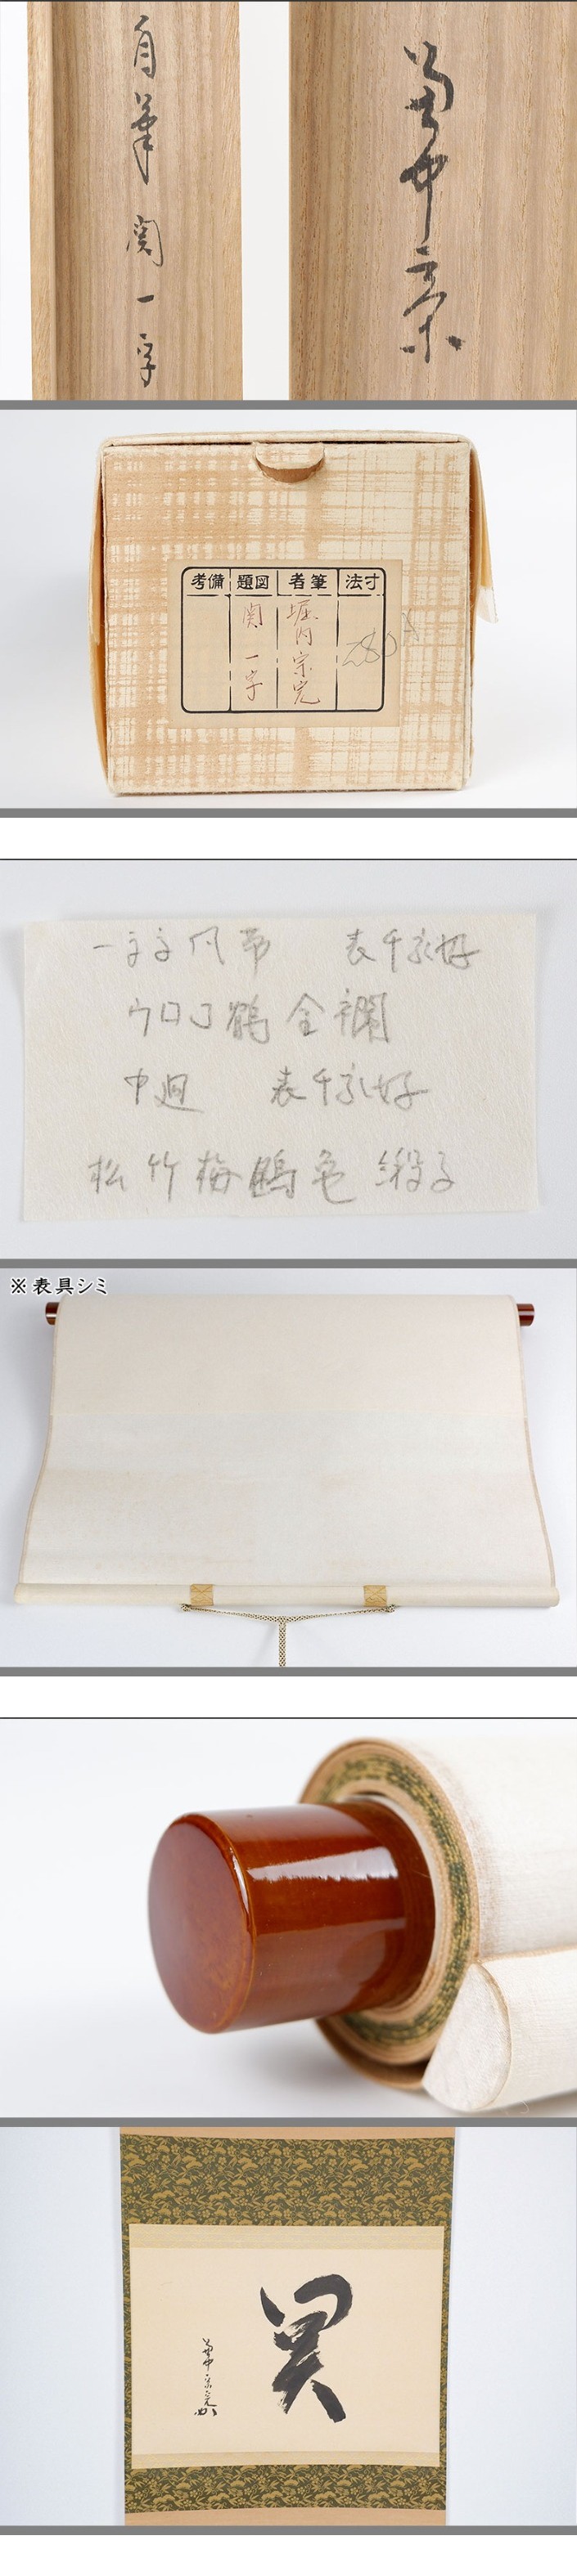 自筆 関 一字
筆者
堀内宗完
図題
関 一字
寸法
備考
一文字風帯 表千家好
ウロコ鶴金襴
中廻 表千家好
松竹梅鶴亀 緞子
※表具シミ
関